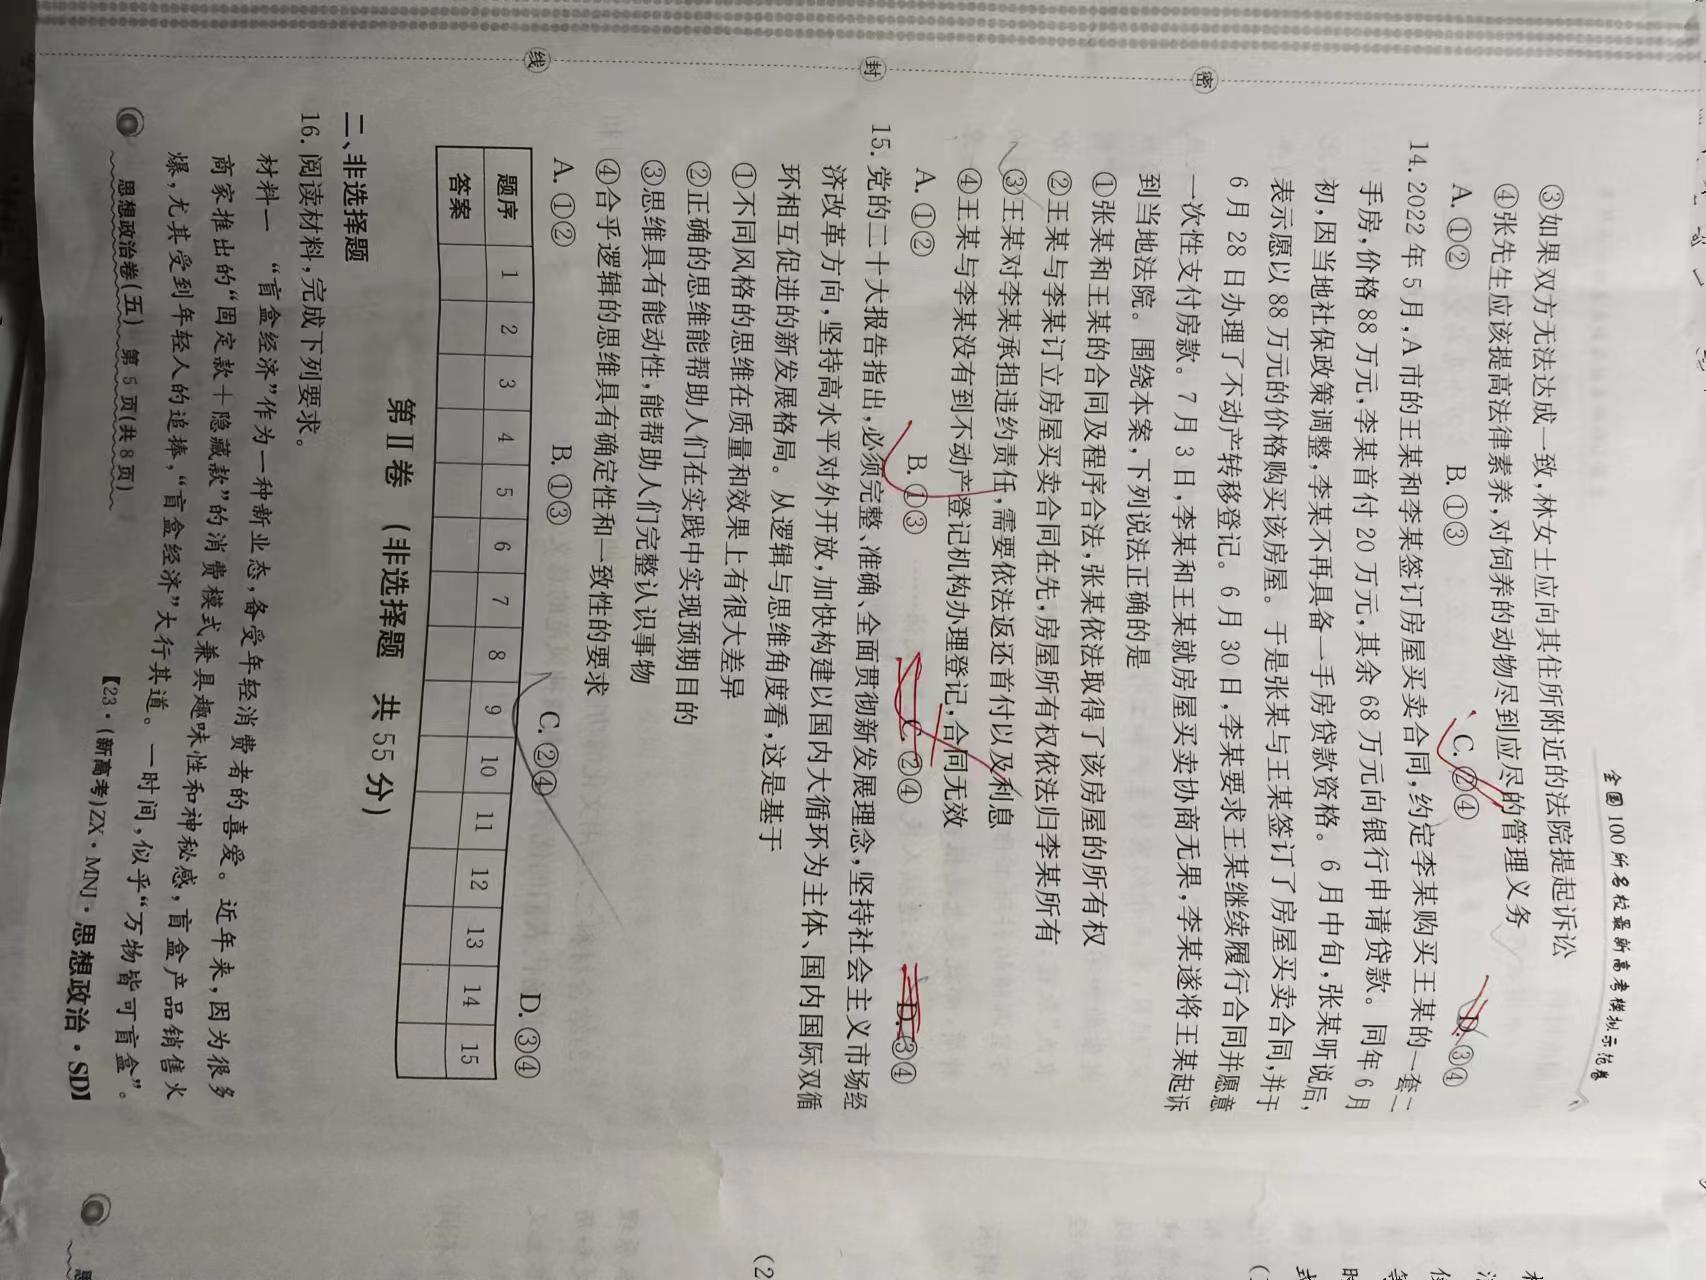 全国100所名校最新高考模拟示范卷
③如果双方无法达成一致,林女士应向其住所附近的法院提起诉讼
④张先生应该提高法律素养,对饲养的动物尽到应尽的管理义务
A.①② B.①③ C.②④ D.③④
14.2022年5月,A市的王某和李某签订房屋买卖合同,约定李某购买王某的一套二
手房,价格88万元,李某首付20万元,其余68万元向银行申请贷款。同年6月
初,因当地社保政策调整,李某不再具备一手房贷款资格。6月中旬,张某听说后,
表示愿以88万元的价格购买该房屋。于是张某与王某签订了房屋买卖合同,并于
6月28日办理了不动产转移登记。6月30日,李某要求王某继续履行合同并愿意
一次性支付房款。7月3日,李某和王某就房屋买卖协商无果,李某遂将王某起诉
到当地法院。围绕本案,下列说法正确的是
①张某和王某的合同及程序合法,张某依法取得了该房屋的所有权
②王某与李某订立房屋买卖合同在先,房屋所有权依法归李某所有
③王某对李某承担违约责任,需要依法返还首付以及利息
④王某与李某没有到不动产登记机构办理登记,合同无效
A.①② B.①③ C.②④ D.③④
15.党的二十大报告指出,必须完整、准确、全面贯彻新发展理念,坚持社会主义市场经
济改革方向,坚持高水平对外开放,加快构建以国内大循环为主体、国内国际双循
环相互促进的新发展格局。从逻辑与思维角度看,这是基于
①不同风格的思维在质量和效果上有很大差异
②正确的思维能帮助人们在实践中实现预期目的
③思维具有能动性,能帮助人们完整认识事物
④合乎逻辑的思维具有确定性和一致性的要求
A.①② B.①③ C.②④ D.③④
题序 1 2 3 4 5 6 7 8 9 10 11 12 13 14 15
答案
第Ⅱ卷 (非选择题 共55分)
二、非选择题
16.阅读材料,完成下列要求。
材料一 “盲盒经济”作为一种新业态,备受年轻消费者的喜爱。近年来,因为很多
商家推出的“固定款+隐藏款”的消费模式兼具趣味性和神秘感,盲盒产品销售火
爆,尤其受到年轻人的追捧,“盲盒经济”大行其道。一时间,似乎“万物皆可盲盒”。
思想政治卷(五) 第5页(共8页)
【23·(新高考)ZX·MNJ·思想政治·SD】
密
封
线
(2